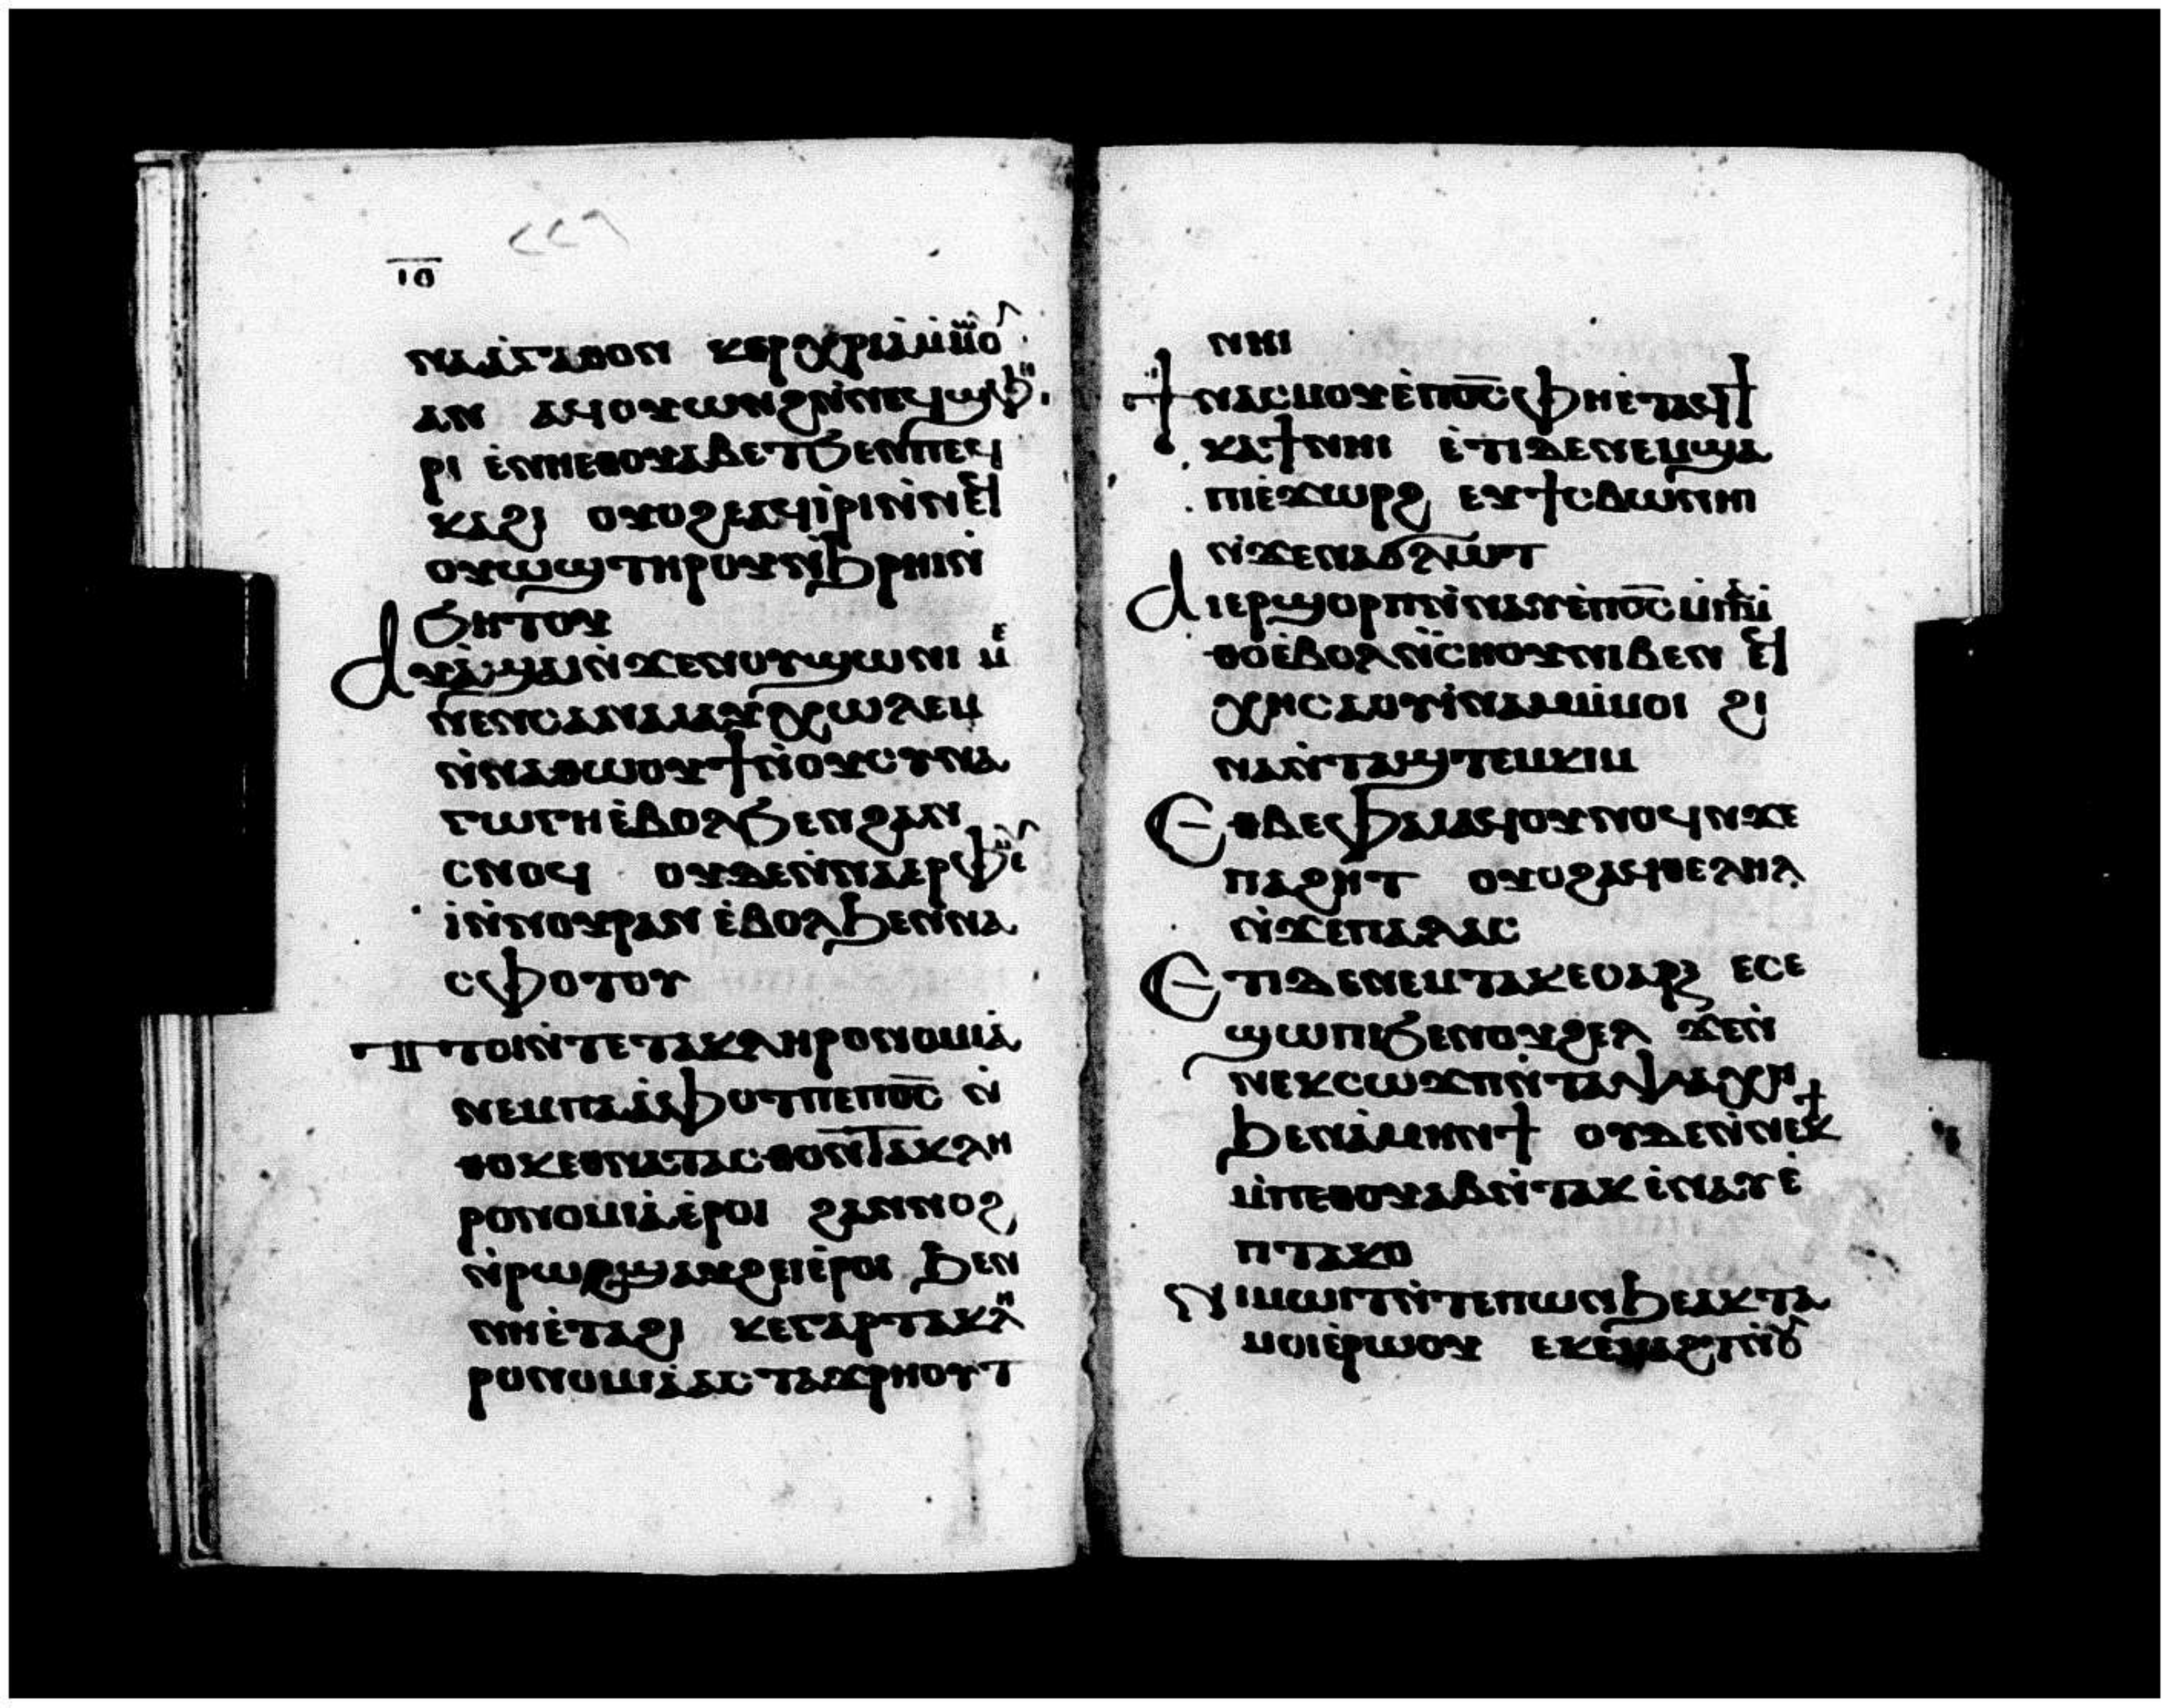 ⲓⲑ
ⲛⲁⲁⲅⲁⲑⲟⲛ ⲕⲉⲣⲭⲣⲓⲁⲙⲙⲟ
ⲁⲛ ⲁϥⲟⲩⲱⲛϩⲛ̀ⲛⲉϥϣⲫⲏ
ⲣⲓ ⲉ̀ⲛⲏⲉⲑⲟⲩⲁⲃⲉⲧϧⲉⲛⲡⲉϥ
ⲕⲁϩⲓ ⲟⲩⲟϩⲉⲁϥⲓ̀ⲣⲓⲛ̀ⲛⲉϥ
ⲟⲩⲱϣⲧⲏⲣⲟⲩⲛ̀ϧⲣⲏⲓⲛ̀
ϧⲏⲧⲟⲩ
ⲁⲩⲁ̀ϣⲁⲓⲛ̀ϫⲉⲛⲟⲩϣⲱⲛⲓ ⲙ
ⲛⲉⲛⲥⲁⲛⲁⲓⲁⲩⲭⲱⲗⲉⲙ
ⲛ̀ⲛⲁⲑⲱⲟⲩϯⲛ̀ⲟⲩⲥⲩⲛⲁ
ⲅⲱⲅⲏⲉ̀ⲃⲟⲗϧⲉⲛϩⲁⲛ
ⲥⲛⲟϥ ⲟⲩⲇⲉⲛ̀ⲛⲁⲉⲣⲫⲙⲉ
ⲓ̀ⲛ̀ⲛⲟⲩⲣⲁⲛ ⲉ̀ⲃⲟⲗϧⲉⲛⲛⲁ
ⲥⲫⲟⲧⲟⲩ
ⲡⲧⲟⲓⲛ̀ⲧⲉⲧⲁⲕⲗⲏⲣⲟⲛⲟⲙⲓⲁ
ⲛⲉⲙⲡⲁⲁ̀ⲫⲟⲧⲡⲉⲡⲟ̅ⲥ̅ ⲛ̀
ⲑⲟⲕⲉⲑⲛⲁⲧⲁⲥⲑⲟⲛ̀ⲧⲁⲕⲗⲏ
ⲣⲟⲛⲟⲙⲓⲁⲉ̀ⲣⲟⲓ ϩⲁⲛⲛⲟϩ
ⲛ̀ⲣⲱϩϣⲁⲩϩⲉⲓⲉ̀ⲣⲟⲓ ϧⲉⲛ
ⲛⲏⲉ̀ⲧⲁϩⲓ ⲕⲉⲅⲁⲣⲧⲁⲕⲗⲏ
ⲣⲟⲛⲟⲙⲓⲁⲁⲥⲧⲁϫⲣⲏⲟⲩⲧ
ⲛⲏⲓ
ϯⲛⲁⲥⲙⲟⲩⲉ̀ⲡⲟ̅ⲥ̅ⲫⲏⲉ̀ⲧⲁϥϯ
ⲕⲁϯⲛⲏⲓ ⲉ̀ⲧⲓⲇⲉⲛⲉⲙϣⲁ
ⲡⲓⲉ̀ϫⲱⲣϩ ⲉⲩϯⲥⲃⲱⲛⲏⲓ
ⲛ̀ϫⲉⲛⲁϭⲗⲱⲧ
ⲁⲓⲉⲣϣⲟⲣⲡⲛ̀ⲛⲁⲩⲉ̀ⲡⲟ̅ⲥ̅ⲙ̀ⲡⲁⲙ̀
ⲑⲟⲉ̀ⲃⲟⲗⲛ̀ⲥⲏⲟⲩⲛⲓⲃⲉⲛ ⲉϥ
ⲭⲏⲥⲁⲟⲩⲓ̀ⲛⲁⲙⲙ̀ⲙⲟⲓ ϩⲓ
ⲛⲁⲛ̀ⲧⲁϣⲧⲉⲙⲕⲓⲙ
ⲉⲑⲃⲉⲫⲁⲓⲁϥⲟⲩⲛⲟϥⲛ̀ϫⲉ
ⲡⲁϩⲏⲧ ⲟⲩⲟϩⲁϥⲑⲉⲗⲏⲗ
ⲛ̀ϫⲉⲡⲁⲗⲁⲥ
ⲉⲧⲓⲇⲉⲛⲉⲙⲧⲁⲕⲉⲥⲁⲣⲝ ⲉⲥⲉ
ϣⲱⲡⲓϧⲉⲛⲟⲩϩⲉⲗ ϫⲉⲛ̀
ⲛⲉⲕⲥⲱϫⲡⲛ̀ⲧⲁⲯⲩⲭⲏ
ϧⲉⲛⲁ̀ⲙⲏⲛϯ ⲟⲩⲇⲉⲛ̀ⲛⲉⲕϯ
ⲙ̀ⲡⲉⲑⲟⲩⲁⲃⲛ̀ⲧⲁⲕ ⲉ̀ⲛⲁⲩⲉ̀
ⲡⲧⲁⲕⲟ
ⲛⲓⲙⲱⲓⲧⲛ̀ⲧⲉⲡⲱⲛϧⲉⲁⲕⲧⲁ
ⲙⲟⲓⲉ̀ⲣⲱⲟⲩ ⲉⲕⲉ̀ⲙⲁϩⲧⲛ̀ⲟⲩ